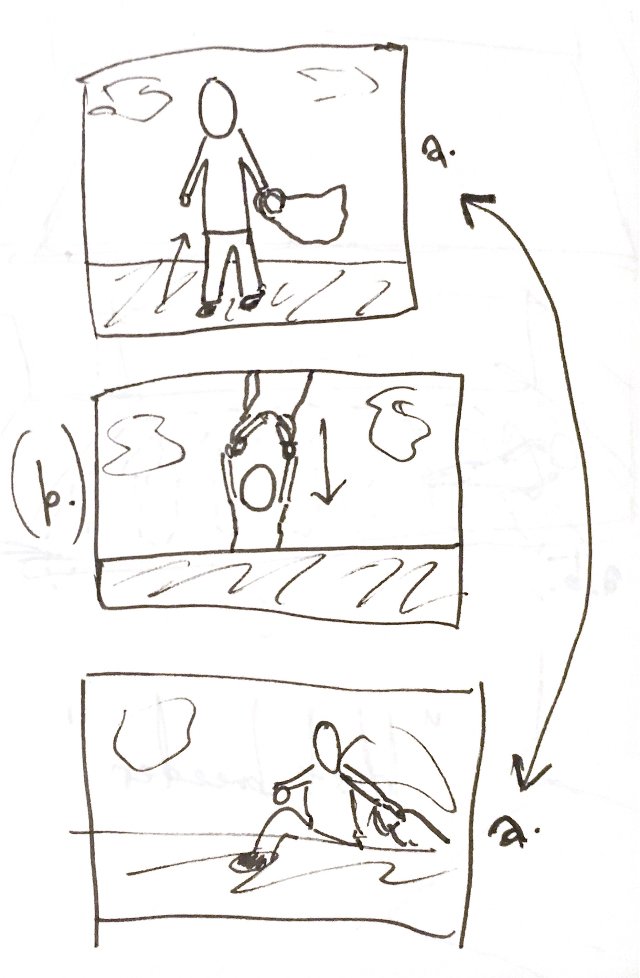 a.
(b.)
a.